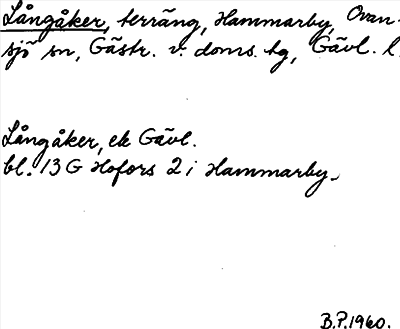 Långåker, terräng, Hammarby, Ovan-
sjö sn, Gästr. v. doms. tg, Gävl. l.
Långåker, ek Gävl.
bl. 13 G Hofors 2 i Hammarby.
B.P. 1960.